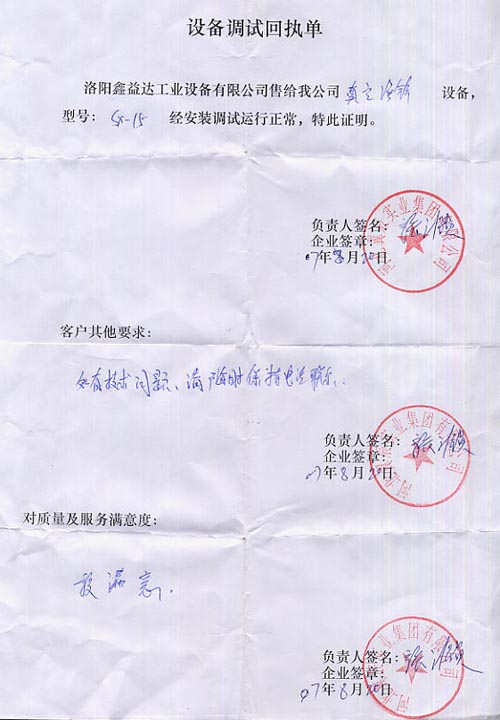 设备调试回执单
洛阳鑫益达工业设备有限公司售给我公司 真空 设备，
型号： SX-15 经安装调试运行正常，特此证明。
负责人签名：
企业签章：
07年8月20日
客户其他要求：
如有技术问题、请随时保持电话联系.
负责人签名：
企业签章：
07年8月20日
对质量及服务满意度：
较满意.
负责人签名：
企业签章：
07年8月20日